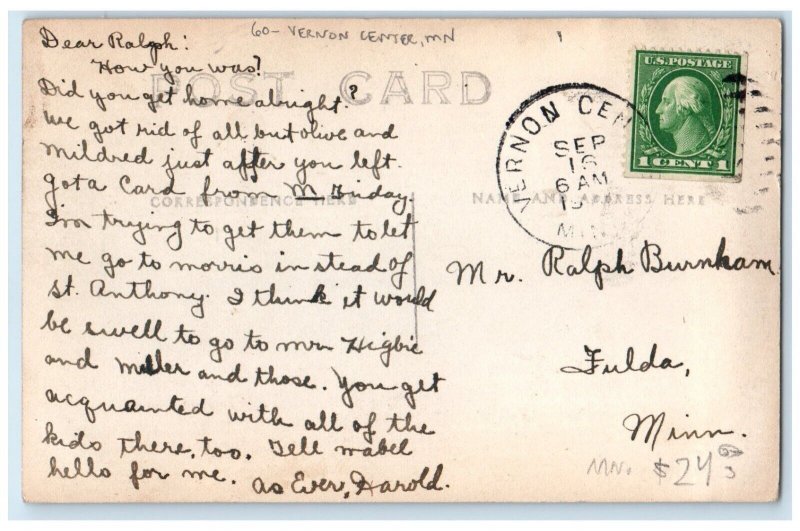 60- VERNON CENTER, MN
POST CARD
Dear Ralph:
How you was?
Did you get home alright?
We got rid of all but olive and
mildred just after you left.
got a card from M
I'm trying to get them to let
me go to morris instead of
St. Anthony. I think it would
be swell to go to mrs Higbie
and miller and those. You get
acquainted with all of the
kids there, too. Tell mabel
hello for me. As Ever, Harold.
CORRESPONDENCE HERE
NAME AND ADDRESS HERE
VERNON CEN
SEP
16
6 AM
19
MIN
U.S. POSTAGE
1 CENT 1
Mr. Ralph Burnham
Fulda,
Minn.
MN. $24